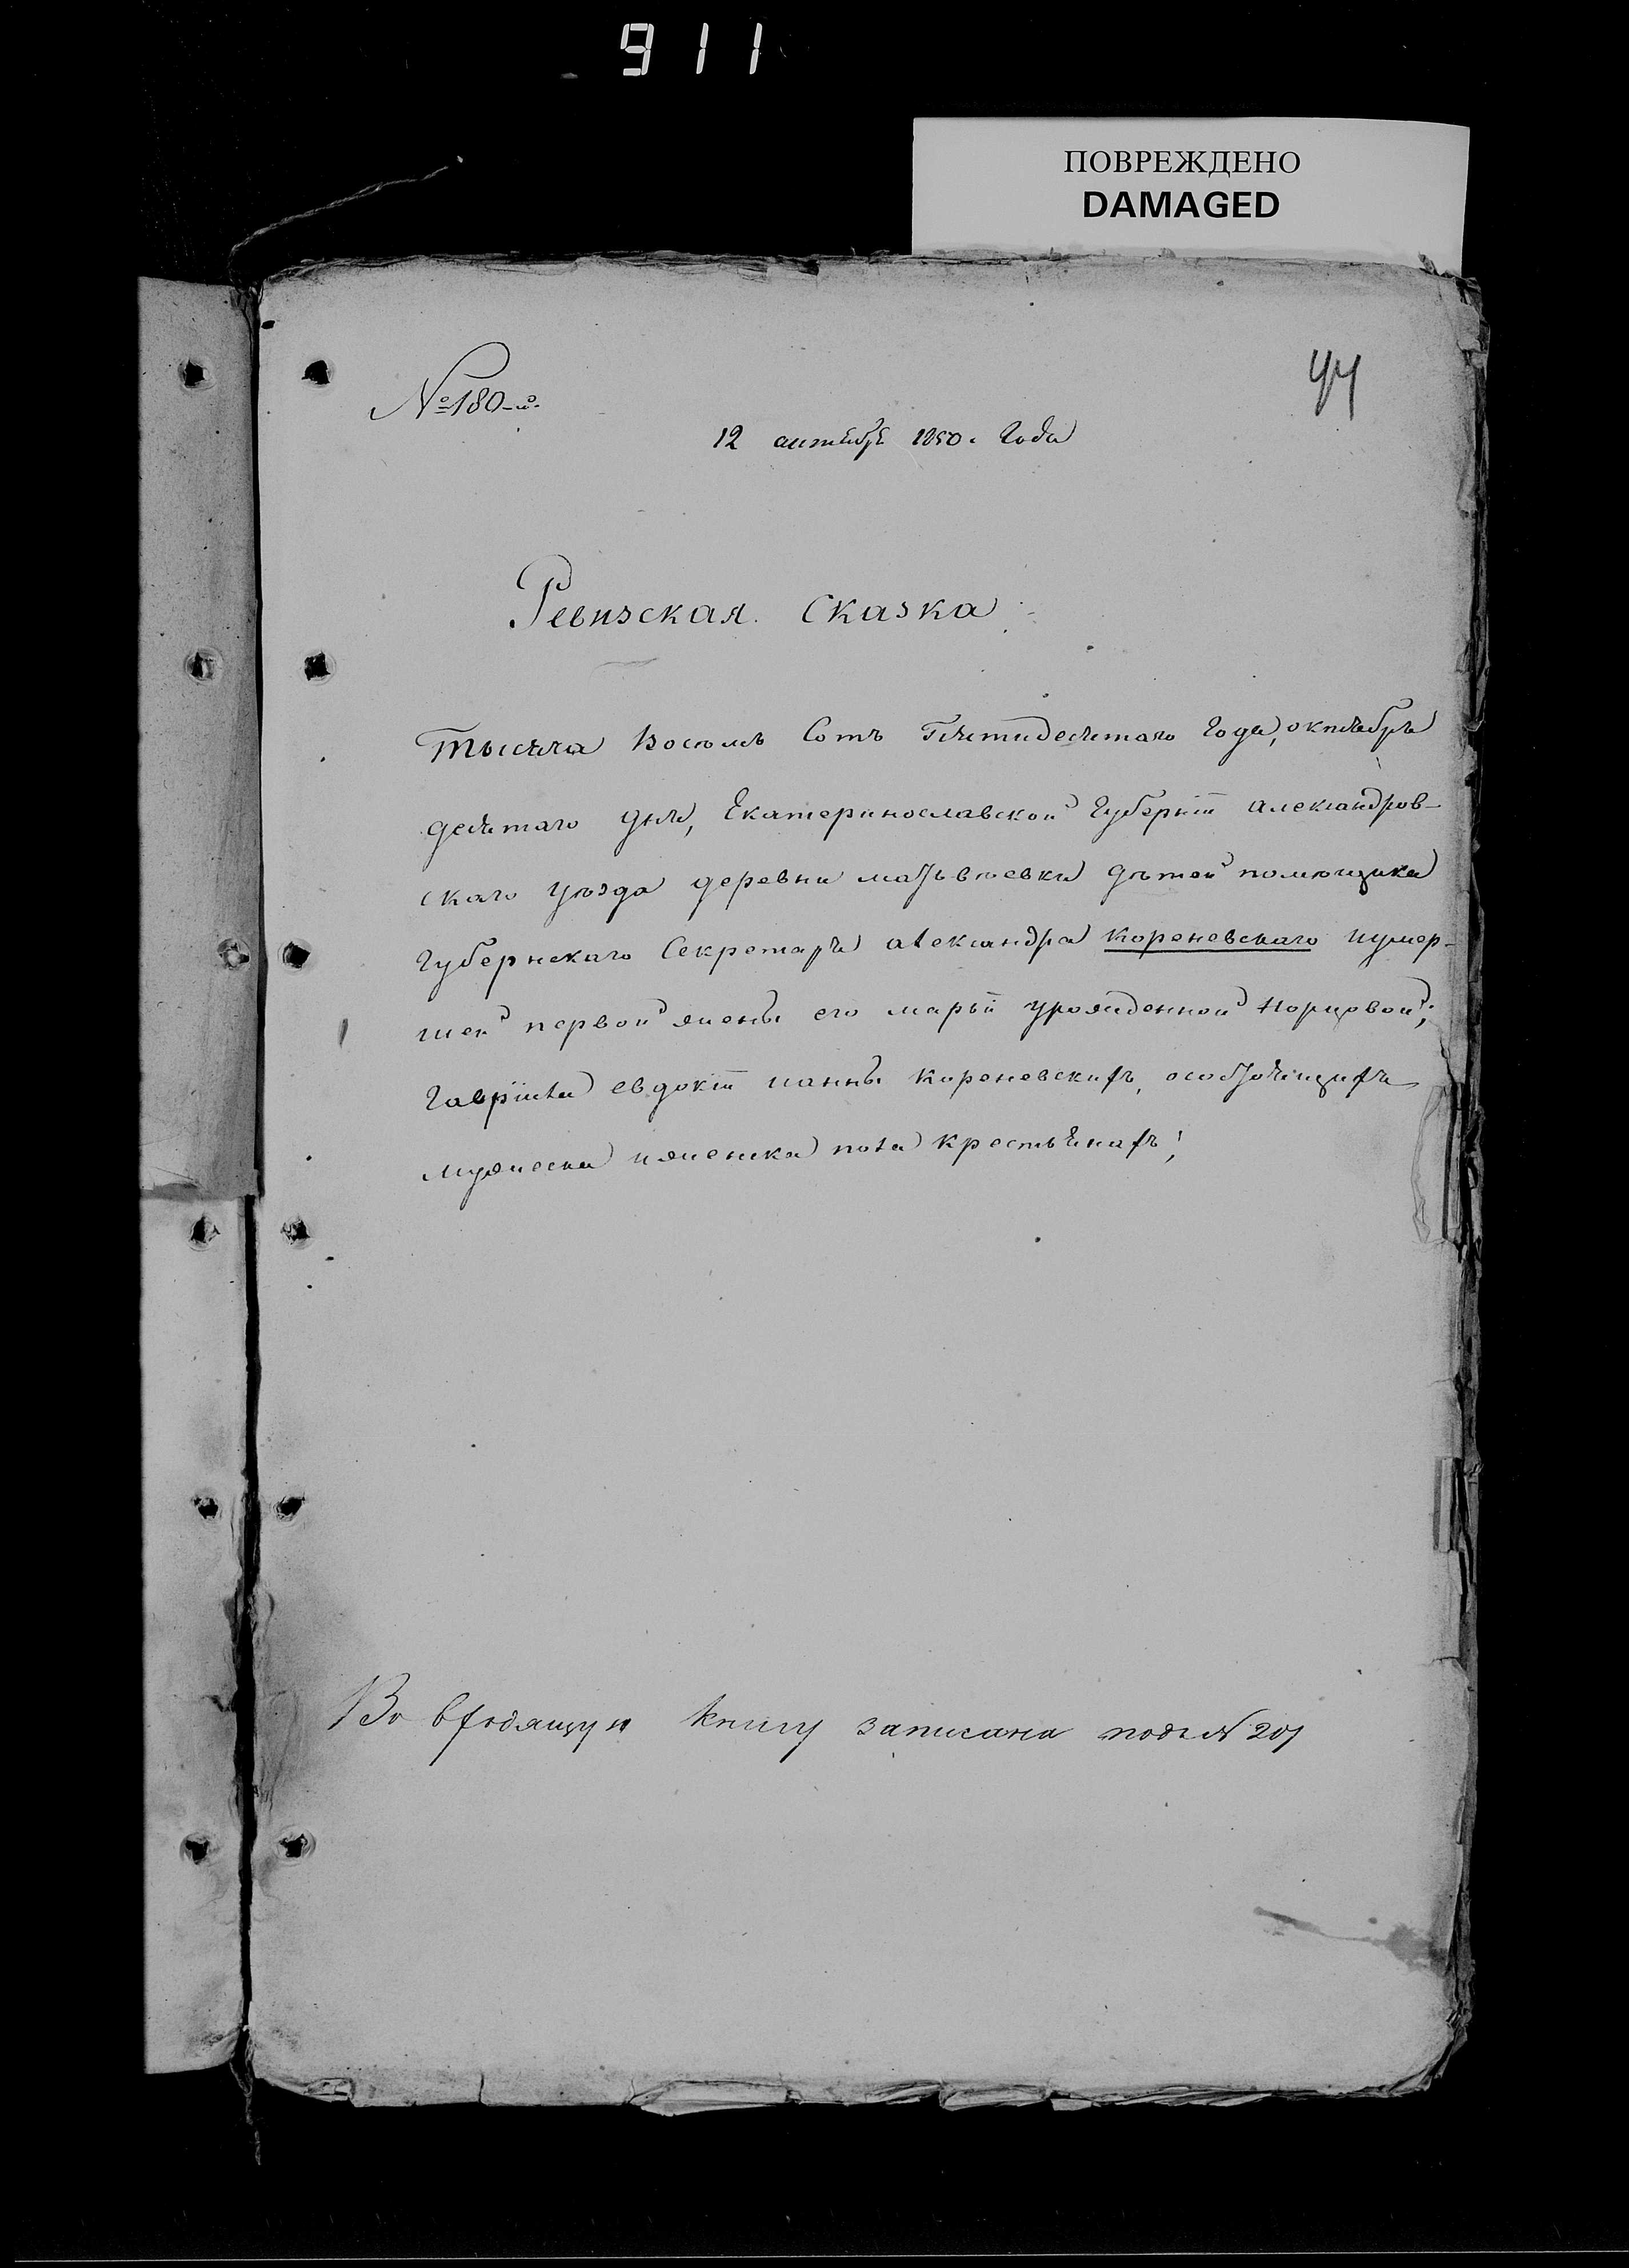 911
ПОВРЕЖДЕНО
DAMAGED
№180-й.
44
12 октября 1850. Года
Ревизская Сказка
Тысяча Восемь Сотъ Пятидесятаго Года, октября
десятаго дня, Екатеринославской Губерніи александров-
скаго уѣзда деревни матьвѣевки дѣтей помѣщика
Губернскаго Секретаря александра Кореневскаго иумер-
шей первой жены его марьи урожденной
Гавріила евдокіи ианны Кореневскихъ,
мужеска иженска пола крестьянахъ;
Во входящую книгу записана подъ №